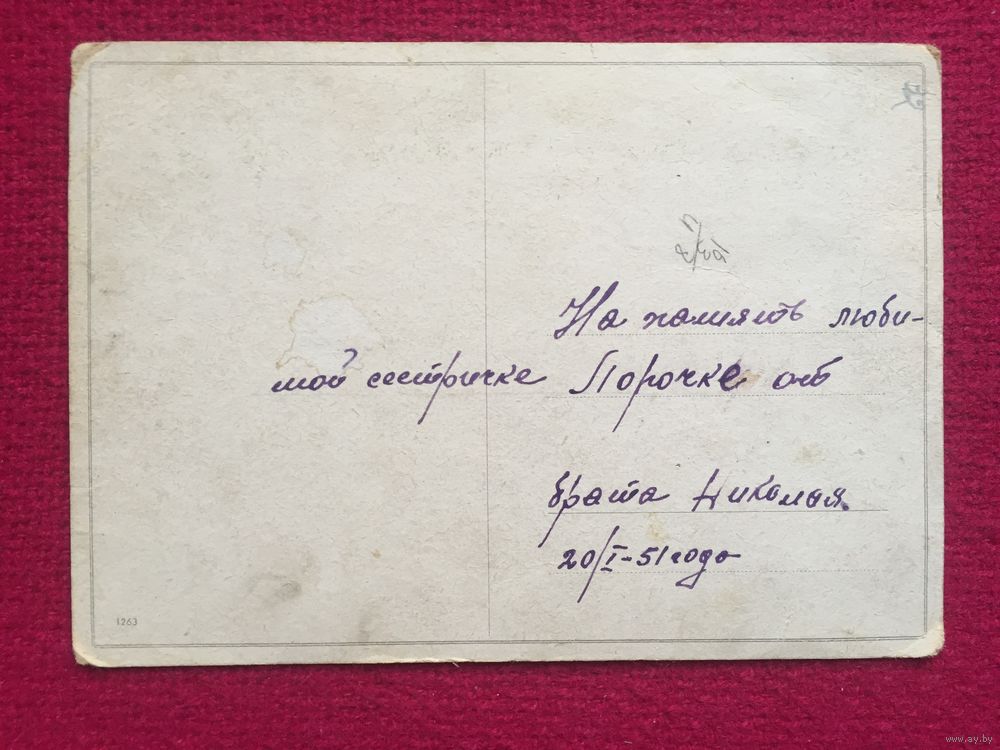 На память люби-
мой сестричке Лорочке от
брата Николая.
20/I-51 года
1263
www.ay.by